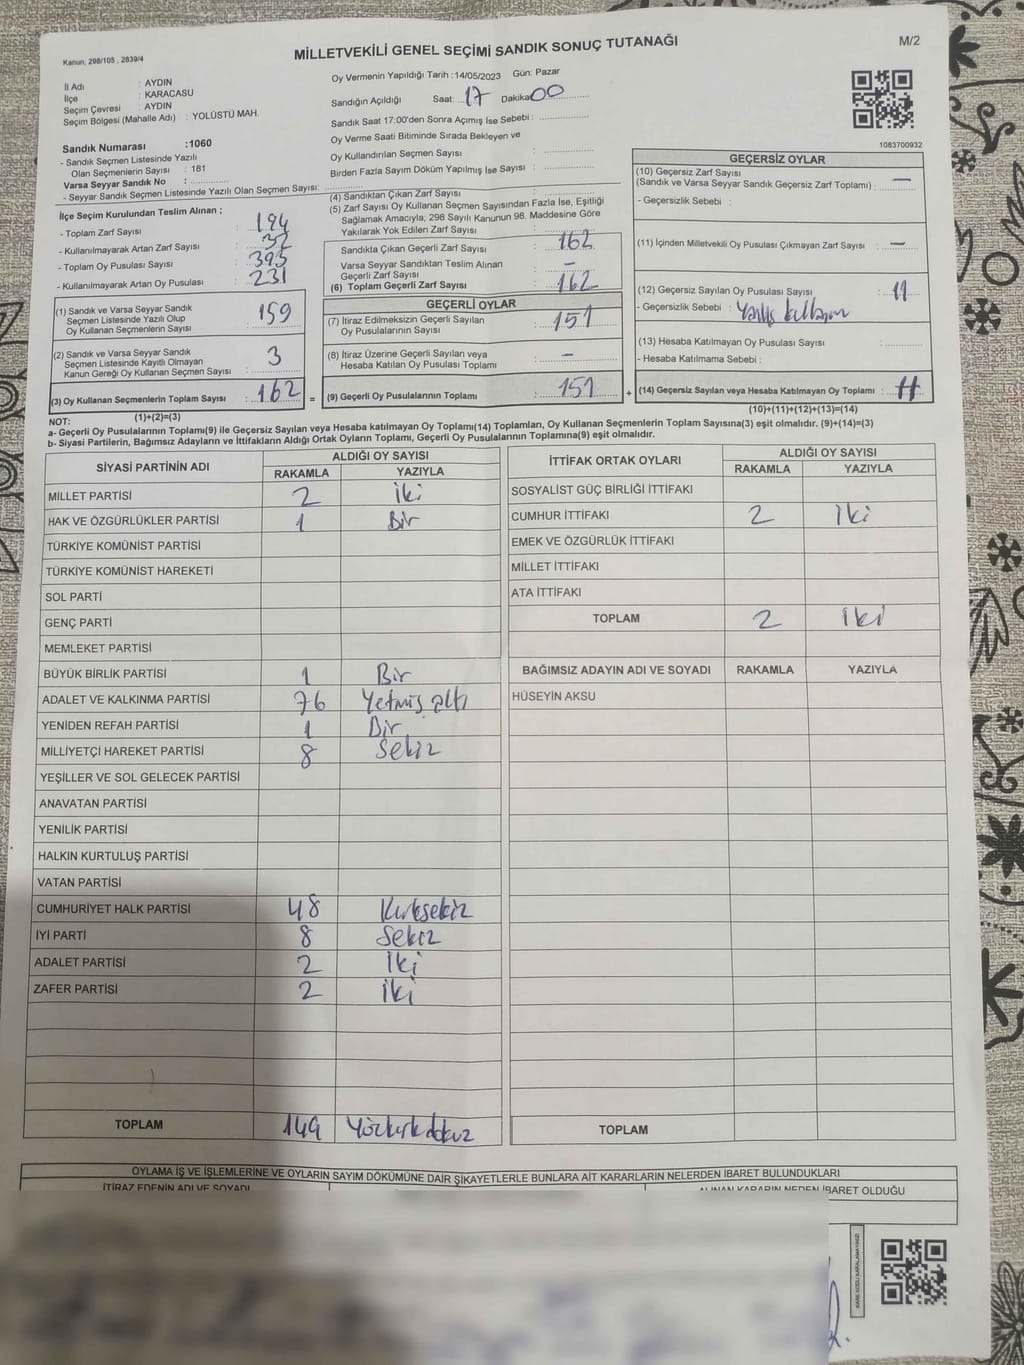 Kanun; 298/105 , 2839/4
MİLLETVEKİLİ GENEL SEÇİMİ SANDIK SONUÇ TUTANAĞI
M/2
İl Adı : AYDIN
İlçe : KARACASU
Seçim Çevresi : AYDIN
Seçim Bölgesi (Mahalle Adı) : YOLÜSTÜ MAH.
Oy Vermenin Yapıldığı Tarih :14/05/2023 Gün: Pazar
Sandığın Açıldığı Saat: 17 Dakika 00
Sandık Saat 17:00'den Sonra Açımış İse Sebebi :
Oy Verme Saati Bitiminde Sırada Bekleyen ve
Oy Kullandırılan Seçmen Sayısı :
Birden Fazla Sayım Döküm Yapılmış İse Sayısı :
1083700932
Sandık Numarası :1060
- Sandık Seçmen Listesinde Yazılı
Olan Seçmenlerin Sayısı : 181
Varsa Seyyar Sandık No :
- Seyyar Sandık Seçmen Listesinde Yazılı Olan Seçmen Sayısı:
İlçe Seçim Kurulundan Teslim Alınan ;
- Toplam Zarf Sayısı : 194
- Kullanılmayarak Artan Zarf Sayısı : 32
- Toplam Oy Pusulası Sayısı : 393
- Kullanılmayarak Artan Oy Pusulası : 231
(1) Sandık ve Varsa Seyyar Sandık
Seçmen Listesinde Yazılı Olup
Oy Kullanan Seçmenlerin Sayısı : 159
(2) Sandık ve Varsa Seyyar Sandık
Seçmen Listesinde Kayıtlı Olmayan
Kanun Gereği Oy Kullanan Seçmen Sayısı : 3
(3) Oy Kullanan Seçmenlerin Toplam Sayısı : 162
(1)+(2)=(3)
(4) Sandıktan Çıkan Zarf Sayısı :
(5) Zarf Sayısı Oy Kullanan Seçmen Sayısından Fazla İse, Eşitliği
Sağlamak Amacıyla; 298 Sayılı Kanunun 98. Maddesine Göre
Yakılarak Yok Edilen Zarf Sayısı :
Sandıkta Çıkan Geçerli Zarf Sayısı : 162
Varsa Seyyar Sandıktan Teslim Alınan
Geçerli Zarf Sayısı : –
(6) Toplam Geçerli Zarf Sayısı : 162
GEÇERLİ OYLAR
(7) İtiraz Edilmeksizin Geçerli Sayılan
Oy Pusulalarının Sayısı : 151
(8) İtiraz Üzerine Geçerli Sayılan veya
Hesaba Katılan Oy Pusulası Toplamı : –
= (9) Geçerli Oy Pusulalarının Toplamı : 151
GEÇERSİZ OYLAR
(10) Geçersiz Zarf Sayısı
(Sandık ve Varsa Seyyar Sandık Geçersiz Zarf Toplamı) : –
- Geçersizlik Sebebi :
(11) İçinden Milletvekili Oy Pusulası Çıkmayan Zarf Sayısı : –
(12) Geçersiz Sayılan Oy Pusulası Sayısı : 11
- Geçersizlik Sebebi : Yanlış kullanım
(13) Hesaba Katılmayan Oy Pusulası Sayısı :
- Hesaba Katılmama Sebebi :
+ (14) Geçersiz Sayılan veya Hesaba Katılmayan Oy Toplamı : 11
(10)+(11)+(12)+(13)=(14)
NOT:
a- Geçerli Oy Pusulalarının Toplamı(9) ile Geçersiz Sayılan veya Hesaba katılmayan Oy Toplamı(14) Toplamları, Oy Kullanan Seçmenlerin Toplam Sayısına(3) eşit olmalıdır. (9)+(14)=(3)
b- Siyasi Partilerin, Bağımsız Adayların ve İttifakların Aldığı Ortak Oyların Toplamı, Geçerli Oy Pusulalarının Toplamına(9) eşit olmalıdır.
SİYASİ PARTİNİN ADI ALDIĞI OY SAYISI
RAKAMLA YAZIYLA
MİLLET PARTİSİ 2 İki
HAK VE ÖZGÜRLÜKLER PARTİSİ 1 Bir
TÜRKİYE KOMÜNİST PARTİSİ
TÜRKİYE KOMÜNİST HAREKETİ
SOL PARTİ
GENÇ PARTİ
MEMLEKET PARTİSİ
BÜYÜK BİRLİK PARTİSİ 1 Bir
ADALET VE KALKINMA PARTİSİ 76 Yetmiş altı
YENİDEN REFAH PARTİSİ 1 Bir
MİLLİYETÇİ HAREKET PARTİSİ 8 Sekiz
YEŞİLLER VE SOL GELECEK PARTİSİ
ANAVATAN PARTİSİ
YENİLİK PARTİSİ
HALKIN KURTULUŞ PARTİSİ
VATAN PARTİSİ
CUMHURİYET HALK PARTİSİ 48 Kırksekiz
İYİ PARTİ 8 Sekiz
ADALET PARTİSİ 2 İki
ZAFER PARTİSİ 2 İki
TOPLAM 149 Yüzkırkdokuz
İTTİFAK ORTAK OYLARI ALDIĞI OY SAYISI
RAKAMLA YAZIYLA
SOSYALİST GÜÇ BİRLİĞİ İTTİFAKI
CUMHUR İTTİFAKI 2 İki
EMEK VE ÖZGÜRLÜK İTTİFAKI
MİLLET İTTİFAKI
ATA İTTİFAKI
TOPLAM 2 İki
BAĞIMSIZ ADAYIN ADI VE SOYADI RAKAMLA YAZIYLA
HÜSEYİN AKSU
TOPLAM
OYLAMA İŞ VE İŞLEMLERİNE VE OYLARIN SAYIM DÖKÜMÜNE DAİR ŞİKAYETLERLE BUNLARA AİT KARARLARIN NELERDEN İBARET BULUNDUKLARI
İTİRAZ EDENİN ADI VE SOYADI ALINAN KARARIN NEDEN İBARET OLDUĞU